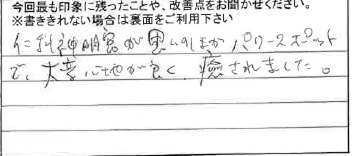 今回最も印象に残ったことや、改善点をお聞かせください。
※書ききれない場合は裏面をご利用下さい
仁科神明宮が思いのほか パワースポット
で、大変心地が良く、癒されました。